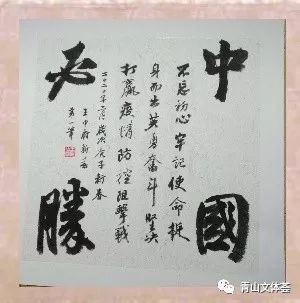 中國
必勝
不忘初心 牢記使命 挺
身而出英勇奮斗 堅決
打贏疫情防控阻擊戰
二〇二〇年二月歲次庚子新春
青山文体荟